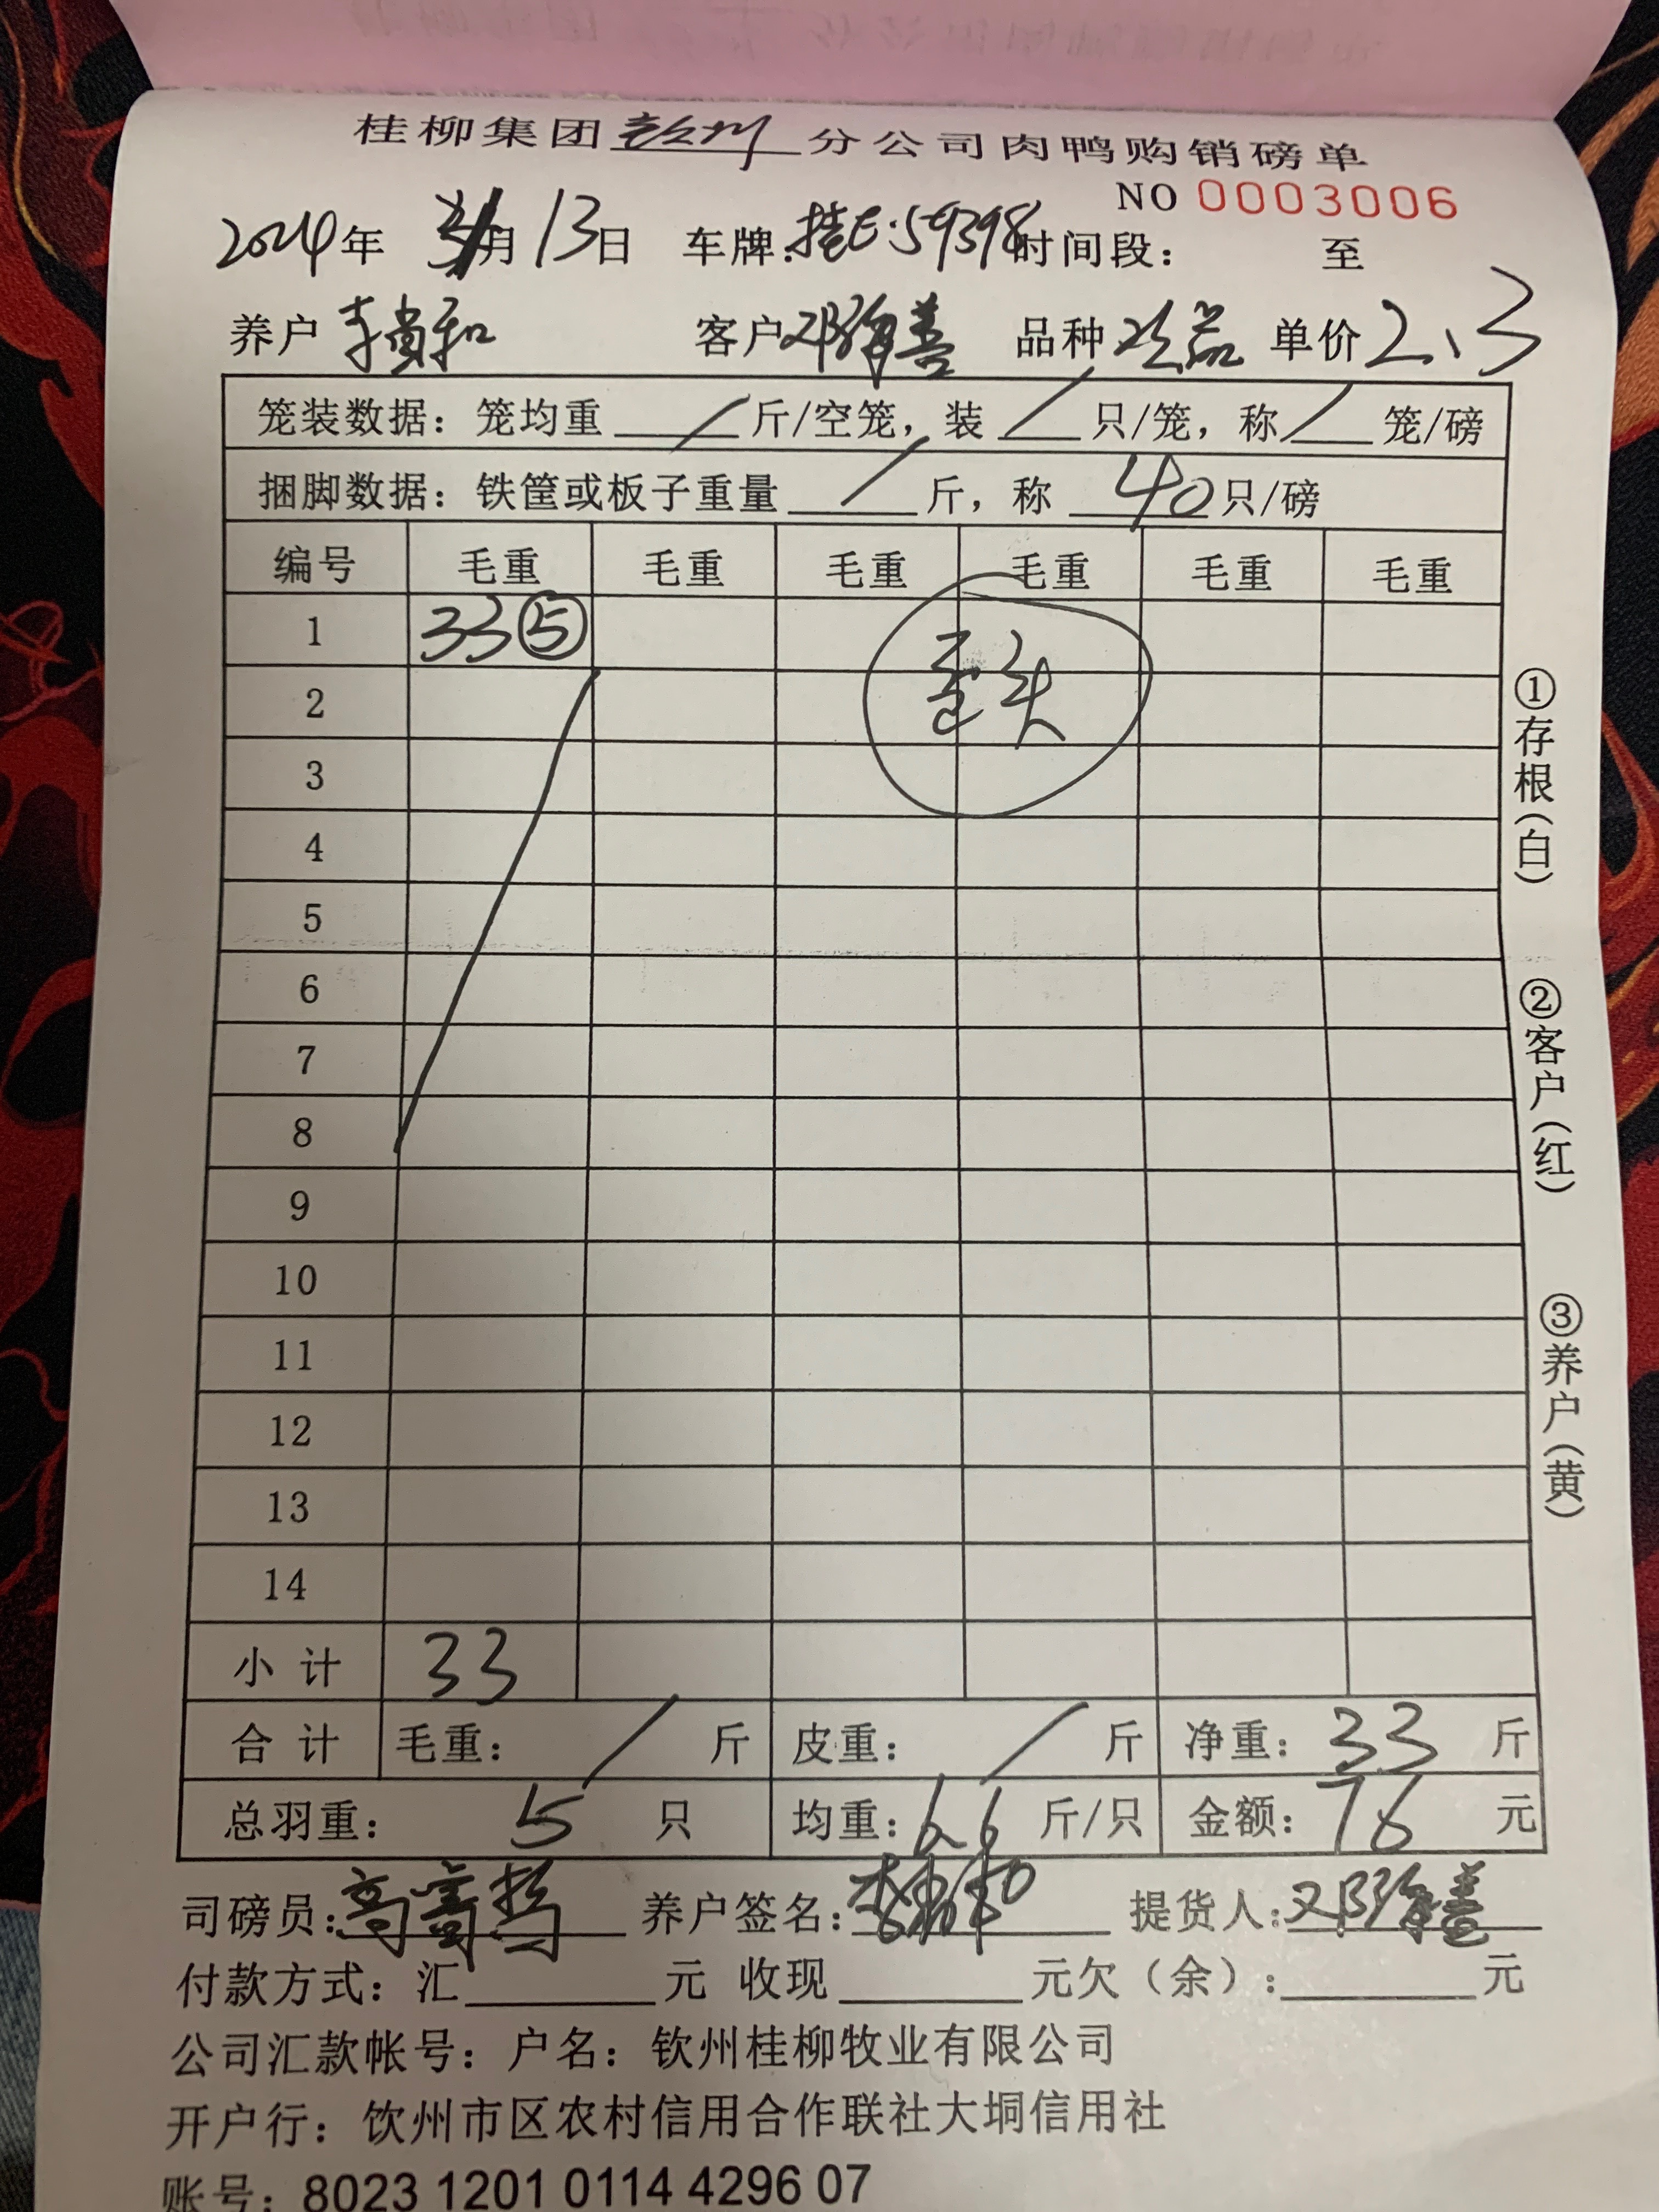 桂柳集团钦州分公司肉鸭购销磅单
NO 0003006
2024年 月13日 车牌:桂E·59398 时间段: 至
养户 李尚和 客户 邓 善 品种 次品 单价 2.3
笼装数据: 笼均重 / 斤/空笼, 装 / 只/笼, 称 / 笼/磅
捆脚数据: 铁筐或板子重量 / 斤, 称 40 只/磅
编号 毛重 毛重 毛重 毛重 毛重 毛重
1 33 ⑤
歪头
2
3
4
5
6
7
8
9
10
11
12
13
14
小计 33
合计 毛重: / 斤 皮重: / 斤 净重: 33 斤
总羽重: 5 只 均重: 6.6 斤/只 金额: 76 元
司磅员: 养户签名: 提货人: 邓 善
付款方式: 汇 元 收现 元欠(余): 元
公司汇款帐号: 户名: 钦州桂柳牧业有限公司
开户行: 钦州市区农村信用合作联社大垌信用社
账号: 8023 1201 0114 4296 07
①存根(白)
②客户(红)
③养户(黄)